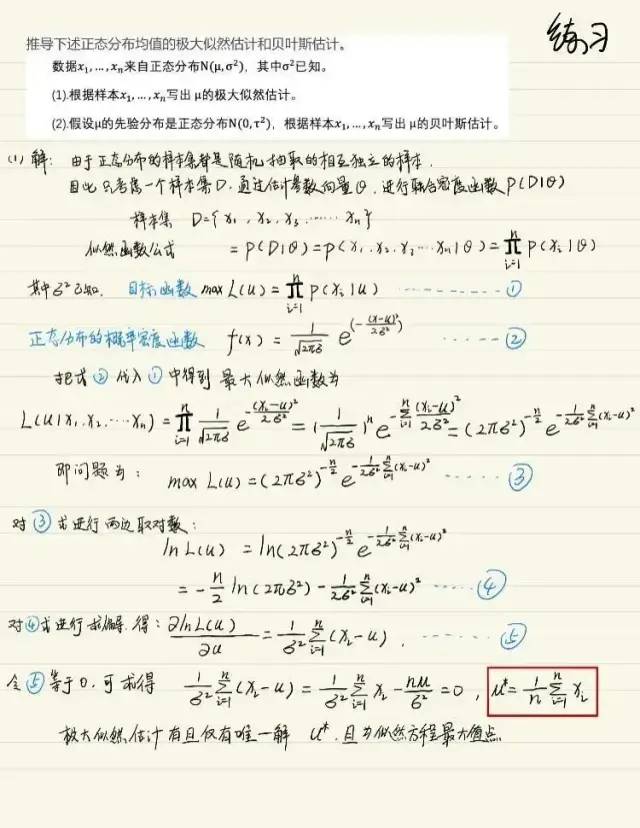 练习
推导下述正态分布均值的极大似然估计和贝叶斯估计。
数据x₁, …, xₙ来自正态分布N(μ,σ²)，其中σ²已知。
(1).根据样本x₁, …, xₙ写出 μ的极大似然估计。
(2).假设μ的先验分布是正态分布N(0,τ²)，根据样本x₁, …, xₙ写出 μ的贝叶斯估计。
(1) 解: 由于正态分布的样本集都是随机抽取的相互独立的样本.
因此 只考虑一个样本集D. 通过估计参数向量θ. 进行联合密度函数 P(D|θ)
样本集 D={x₁, x₂, x₃ …… xₙ}
似然函数公式 = P(D|θ) = P(x₁, x₂, x₃ … xₙ|θ) = ∏ᵢ₌₁ⁿ P(xᵢ|θ)
其中 σ²已知. 目标函数 max L(u) = ∏ᵢ₌₁ⁿ P(xᵢ|u) ------- ①
正态分布的概率密度函数 f(x) = 1/√(2πσ) e^(-(x-u)²/2σ²) ----- ②
把式 ② 代入 ① 中得到 最大似然函数为
L(u|x₁, x₂ … xₙ) = ∏ᵢ₌₁ⁿ 1/√(2πσ) e^(-(xᵢ-u)²/2σ²) = (1/√(2πσ))ⁿ e^(-∑ᵢ₌₁ⁿ (xᵢ-u)²/2σ²) = (2πσ²)^(-n/2) e^(-1/2σ² ∑ᵢ₌₁ⁿ(xᵢ-u)²)
即问题为: max L(u) = (2πσ²)^(-n/2) e^(-1/2σ² ∑ᵢ₌₁ⁿ(xᵢ-u)²) ----- ③
对 ③ 式进行两边取对数:
ln L(u) = ln(2πσ²)^(-n/2) e^(-1/2σ² ∑ᵢ₌₁ⁿ(xᵢ-u)²)
= -n/2 ln(2πσ²) - 1/2σ² ∑ᵢ₌₁ⁿ(xᵢ-u)² ----- ④
对④式进行求偏导. 得: ∂lnL(u)/∂u = 1/σ² ∑ᵢ₌₁ⁿ (xᵢ-u). ----- ⑤
令 ⑤ 等于0, 可求得 1/σ² ∑ᵢ₌₁ⁿ(xᵢ-u) = 1/σ² ∑ᵢ₌₁ⁿ xᵢ - nu/σ² = 0, u* = 1/n ∑ᵢ₌₁ⁿ xᵢ
极大似然估计有且仅有唯一解 u*. 且为似然方程最大值点